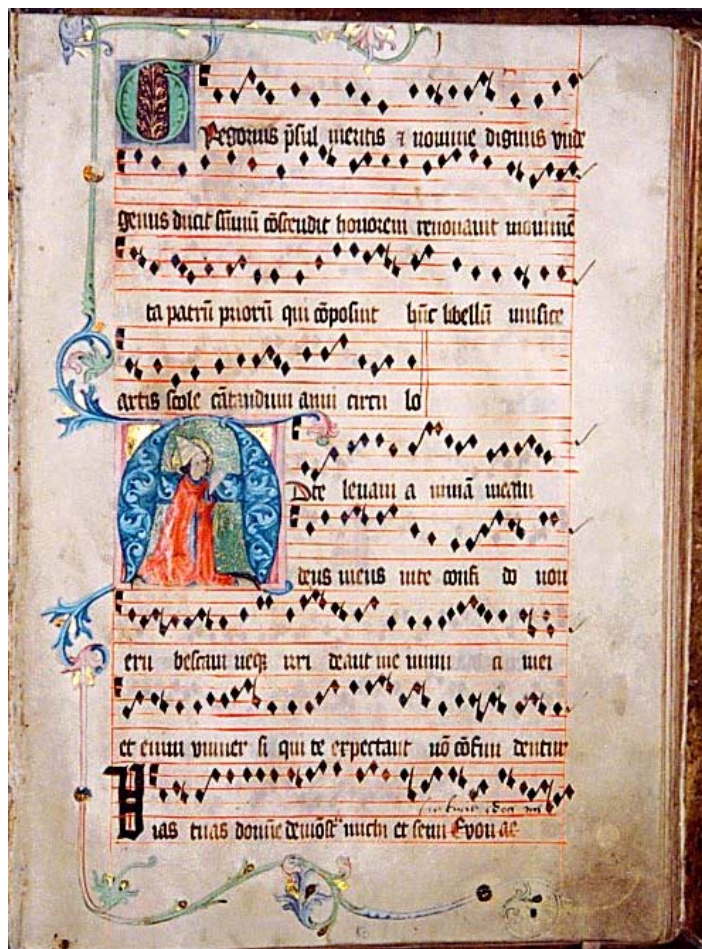 Gregorius p̄sul meritis ⁊ nomine dignus vnde
genus ducit sūmū cōscendit honorem renouauit monimē
ta patrū priorū qui cōposuit hūc libellū musice
artis scole cātandum anni circu lo
AD te leuaui a nimā meam
deus meus inte confi do non
eru bescam neqꝫ irri deant me inimi ci mei
et enim vniuer si qui te expectant nō cōfun dentur
Vias tuas domine demōst̄ michi et semi Euouae